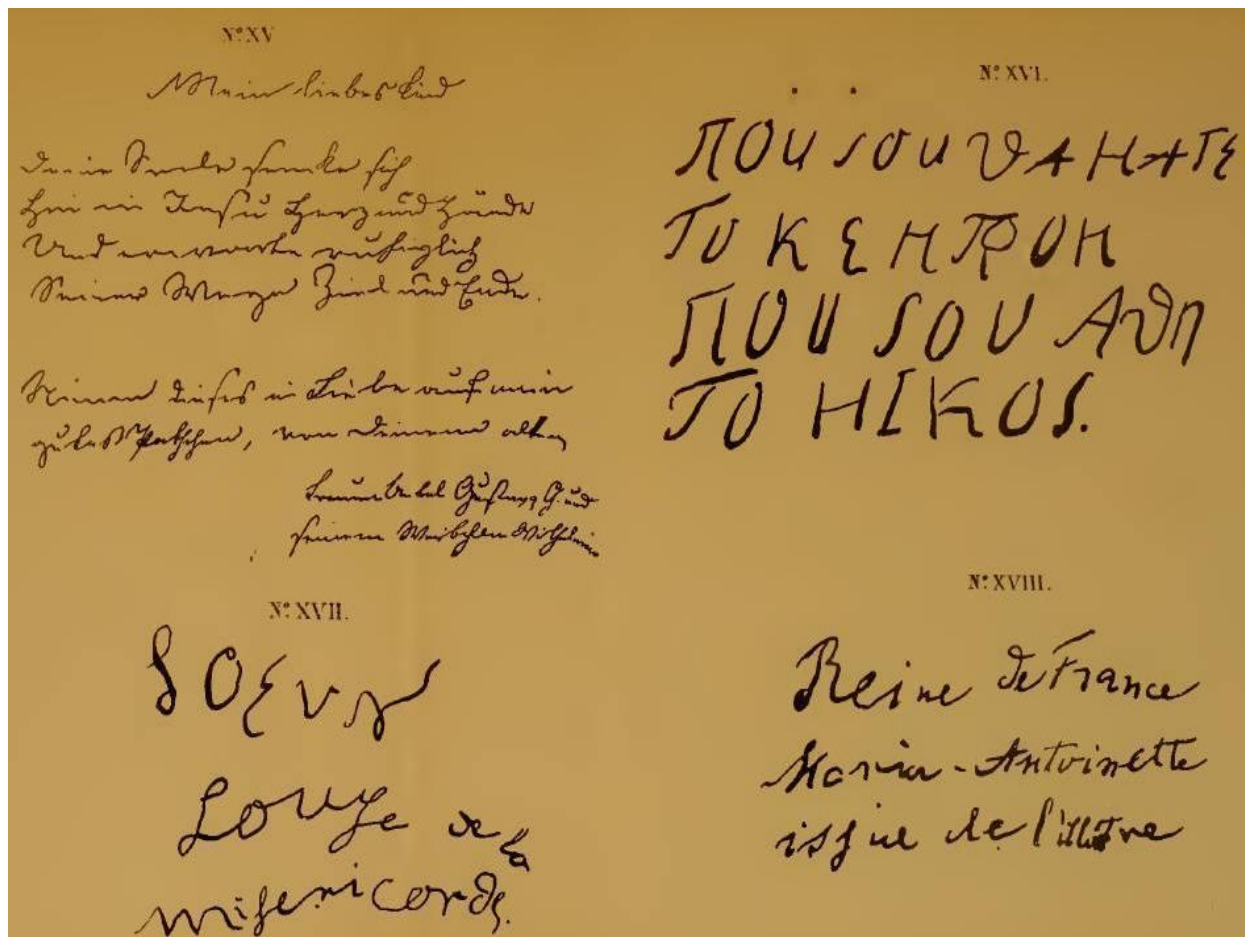 N.º XV
Mein liebes Kind
Deine Seele senke sich
Hin in Jesu Herz und Hände
Und erwarte ruhiglich
Seiner Wege Ziel und Ende.
Nimm dieses in Liebe auf mein
gutes Patchen, von Deinem alten
Gustav G. und
seinem Weibchen Wilhelmine
N.º XVI.
ΠΟU SOU ϑΑΗΑΤΕ
ΤΟ ΚΕΗΤΡΟΗ
ΠΟU SOU Αϑη
ΤΟ ΗΙΚΟS.
N.º XVII.
Louise de la
misericorde.
N.º XVIII.
Reine de France
Maria-Antoinette
issue de l'illustre